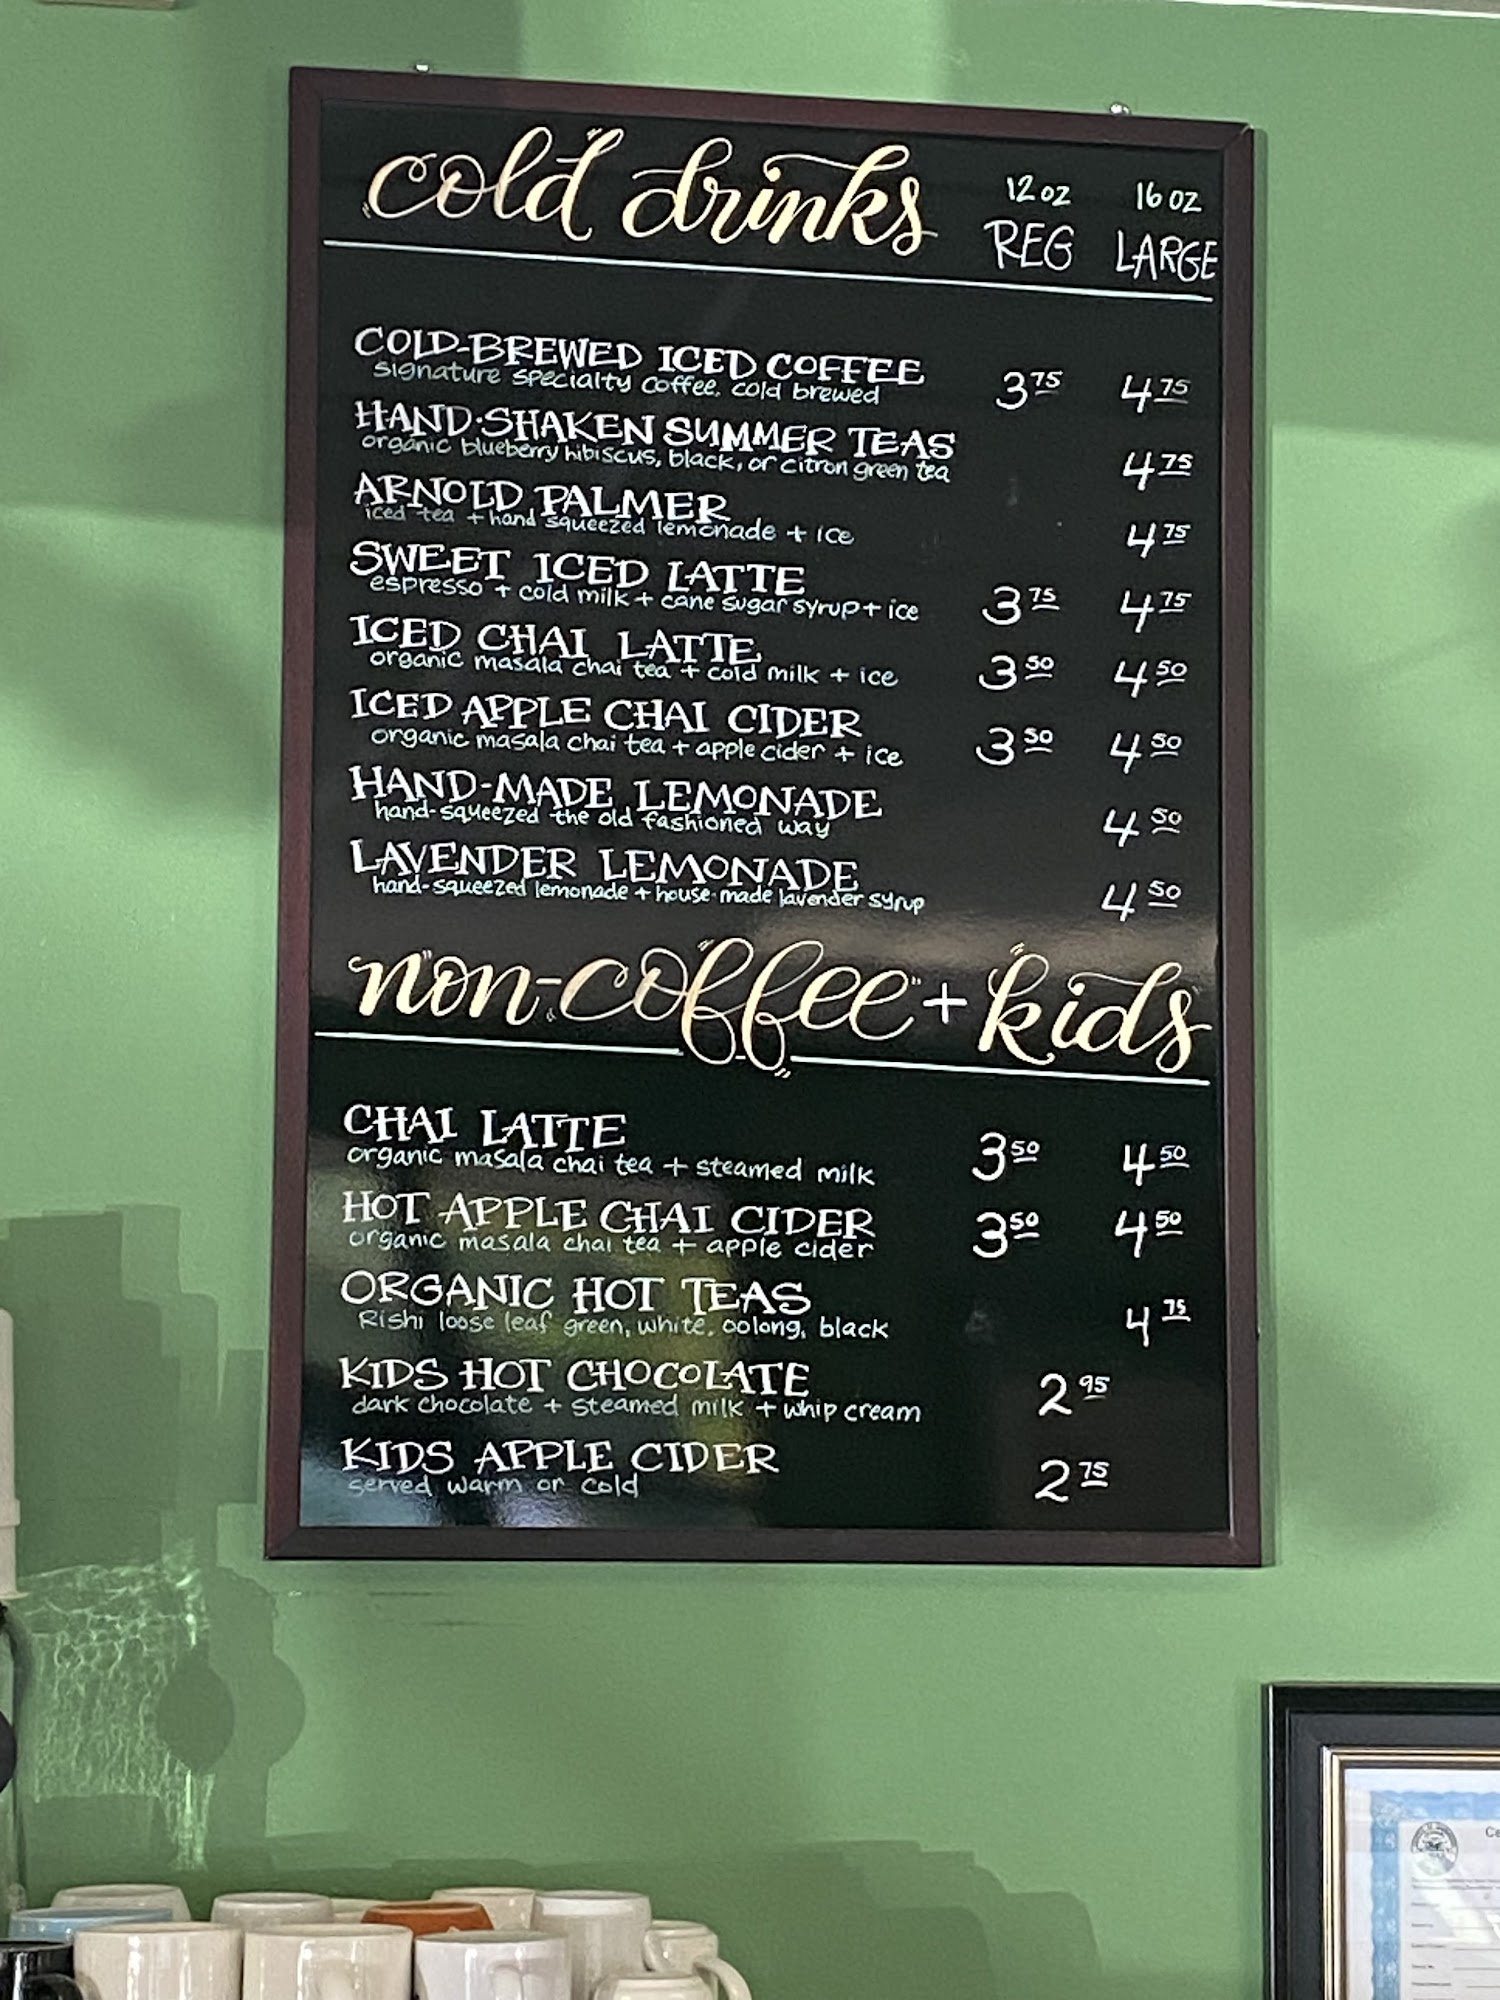 cold drinks
12 oz 16 oz
REG LARGE
COLD-BREWED ICED COFFEE
signature specialty coffee, cold brewed 3 75 4 75
HAND-SHAKEN SUMMER TEAS
organic blueberry hibiscus, black, or citron green tea 4 75
ARNOLD PALMER
iced tea + hand squeezed lemonade + ice 4 75
SWEET ICED LATTE
espresso + cold milk + cane sugar syrup + ice 3 75 4 75
ICED CHAI LATTE
organic masala chai tea + cold milk + ice 3 50 4 50
ICED APPLE CHAI CIDER
organic masala chai tea + apple cider + ice 3 50 4 50
HAND-MADE LEMONADE
hand-squeezed the old fashioned way 4 50
LAVENDER LEMONADE
hand-squeezed lemonade + house-made lavender syrup 4 50
non-coffee + kids
CHAI LATTE
organic masala chai tea + steamed milk 3 50 4 50
HOT APPLE CHAI CIDER
organic masala chai tea + apple cider 3 50 4 50
ORGANIC HOT TEAS
Rishi loose leaf green, white, oolong, black 4 75
KIDS HOT CHOCOLATE
dark chocolate + steamed milk + whip cream 2 95
KIDS APPLE CIDER
served warm or cold 2 75